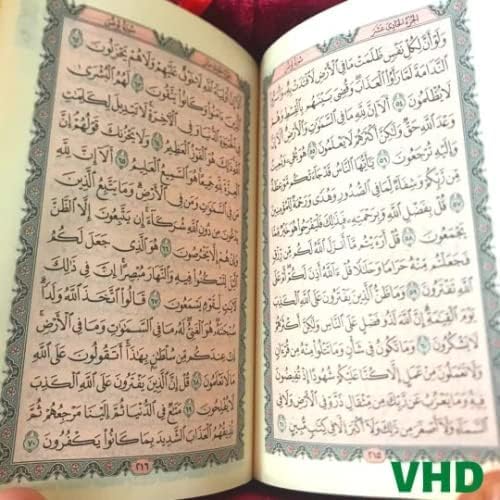 الجزء الحادي عشر
سورة يونس
وَلَوْ أَنَّ لِكُلِّ نَفْسٍ ظَلَمَتْ مَا فِي الْأَرْضِ لَافْتَدَتْ بِهِ وَأَسَرُّوا
النَّدَامَةَ لَمَّا رَأَوُا الْعَذَابَ وَقُضِيَ بَيْنَهُم بِالْقِسْطِ وَهُمْ
لَا يُظْلَمُونَ ٥٤ أَلَا إِنَّ لِلَّهِ مَا فِي السَّمَٰوَٰتِ وَالْأَرْضِ أَلَا إِنَّ
وَعْدَ اللَّهِ حَقٌّ وَلَٰكِنَّ أَكْثَرَهُمْ لَا يَعْلَمُونَ ٥٥ هُوَ يُحْيِۦ وَيُمِيتُ
وَإِلَيْهِ تُرْجَعُونَ ٥٦ يَٰٓأَيُّهَا النَّاسُ قَدْ جَآءَتْكُم مَّوْعِظَةٌ
مِّن رَّبِّكُمْ وَشِفَآءٌ لِّمَا فِي الصُّدُورِ وَهُدًى وَرَحْمَةٌ لِّلْمُؤْمِنِينَ
٥٧ قُلْ بِفَضْلِ اللَّهِ وَبِرَحْمَتِهِ فَبِذَٰلِكَ فَلْيَفْرَحُوا هُوَ خَيْرٌ مِّمَّا
يَجْمَعُونَ ٥٨ قُلْ أَرَءَيْتُم مَّآ أَنزَلَ اللَّهُ لَكُم مِّن رِّزْقٍ
فَجَعَلْتُم مِّنْهُ حَرَامًا وَحَلَٰلًا قُلْ ءَآللَّهُ أَذِنَ لَكُمْ أَمْ عَلَى
اللَّهِ تَفْتَرُونَ ٥٩ وَمَا ظَنُّ الَّذِينَ يَفْتَرُونَ عَلَى اللَّهِ الْكَذِبَ
يَوْمَ الْقِيَٰمَةِ إِنَّ اللَّهَ لَذُو فَضْلٍ عَلَى النَّاسِ وَلَٰكِنَّ أَكْثَرَهُمْ
لَا يَشْكُرُونَ ٦٠ وَمَا تَكُونُ فِي شَأْنٍ وَمَا تَتْلُوا مِنْهُ مِن قُرْءَانٍ
وَلَا تَعْمَلُونَ مِنْ عَمَلٍ إِلَّا كُنَّا عَلَيْكُمْ شُهُودًا إِذْ تُفِيضُونَ
فِيهِ وَمَا يَعْزُبُ عَن رَّبِّكَ مِن مِّثْقَالِ ذَرَّةٍ فِي الْأَرْضِ وَلَا فِي
السَّمَآءِ وَلَآ أَصْغَرَ مِن ذَٰلِكَ وَلَآ أَكْبَرَ إِلَّا فِي كِتَٰبٍ مُّبِينٍ ٦١
٢١٥
سورة يونس
أَلَآ إِنَّ أَوْلِيَآءَ اللَّهِ لَا خَوْفٌ عَلَيْهِمْ وَلَا هُمْ يَحْزَنُونَ ٦٢
الَّذِينَ ءَامَنُوا وَكَانُوا يَتَّقُونَ ٦٣ لَهُمُ الْبُشْرَىٰ
فِي الْحَيَوٰةِ الدُّنْيَا وَفِي الْءَاخِرَةِ لَا تَبْدِيلَ لِكَلِمَٰتِ
اللَّهِ ذَٰلِكَ هُوَ الْفَوْزُ الْعَظِيمُ ٦٤ وَلَا يَحْزُنكَ قَوْلُهُمْ إِنَّ
الْعِزَّةَ لِلَّهِ جَمِيعًا هُوَ السَّمِيعُ الْعَلِيمُ ٦٥ أَلَآ إِنَّ لِلَّهِ
مَن فِي السَّمَٰوَٰتِ وَمَن فِي الْأَرْضِ وَمَا يَتَّبِعُ الَّذِينَ
يَدْعُونَ مِن دُونِ اللَّهِ شُرَكَآءَ إِن يَتَّبِعُونَ إِلَّا الظَّنَّ
وَإِنْ هُمْ إِلَّا يَخْرُصُونَ ٦٦ هُوَ الَّذِي جَعَلَ لَكُمُ
الَّيْلَ لِتَسْكُنُوا فِيهِ وَالنَّهَارَ مُبْصِرًا إِنَّ فِي ذَٰلِكَ
لَءَايَٰتٍ لِّقَوْمٍ يَسْمَعُونَ ٦٧ قَالُوا اتَّخَذَ اللَّهُ وَلَدًا
سُبْحَٰنَهُ هُوَ الْغَنِيُّ لَهُ مَا فِي السَّمَٰوَٰتِ وَمَا فِي الْأَرْضِ
إِنْ عِندَكُم مِّن سُلْطَٰنٍ بِهَٰذَآ أَتَقُولُونَ عَلَى اللَّهِ
مَا لَا تَعْلَمُونَ ٦٨ قُلْ إِنَّ الَّذِينَ يَفْتَرُونَ عَلَى اللَّهِ الْكَذِبَ
لَا يُفْلِحُونَ ٦٩ مَتَٰعٌ فِي الدُّنْيَا ثُمَّ إِلَيْنَا مَرْجِعُهُمْ ثُمَّ
نُذِيقُهُمُ الْعَذَابَ الشَّدِيدَ بِمَا كَانُوا يَكْفُرُونَ ٧٠
٢١٦
VHD